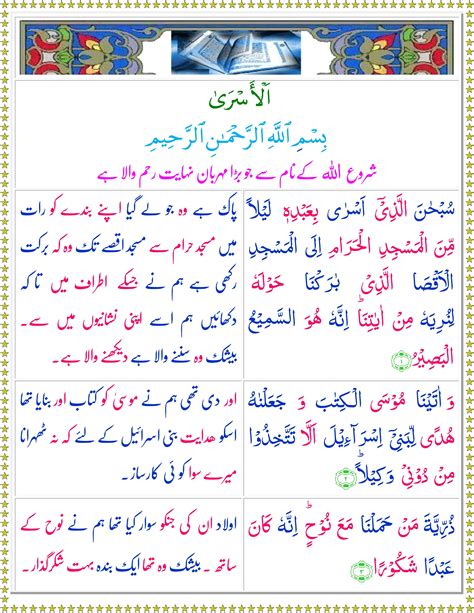 اَلْأَسْرَىٰ
بِسْمِ ٱللَّهِ ٱلرَّحْمَٰنِ ٱلرَّحِيمِ
شروع اللہ کے نام سے جو بڑا مہربان نہایت رحم والا ہے
سُبْحٰنَ الَّذِىْۤ اَسْرٰى بِعَبْدِهٖ لَيْلًا
مِّنَ الْمَسْجِدِ الْحَرَامِ اِلَى الْمَسْجِدِ
الْاَقْصَا الَّذِىْ بٰرَكْنَا حَوْلَهٗ
لِنُرِيَهٗ مِنْ اٰيٰتِنَا ؕ اِنَّهٗ هُوَ السَّمِيْعُ
الْبَصِيْرُ ﴿۱﴾
پاک ہے وہ جو لے گیا اپنے بندے کو رات
میں مسجد حرام سے مسجد اقصےٰ تک وہ کہ برکت
رکھی ہے ہم نے جسکے اطراف میں تا کہ
دکھائیں ہم اسے اپنی نشانیوں میں سے۔
بیشک وہ سننے والا ہے دیکھنے والا ہے۔
وَ اٰتَيْنَا مُوْسَى الْكِتٰبَ وَ جَعَلْنٰهُ
هُدًى لِّبَنِىْۤ اِسْرَآءِيْلَ اَلَّا تَتَّخِذُوْا
مِنْ دُوْنِىْ وَكِيْلًا ؕ ﴿۲﴾
اور دی تھی ہم نے موسیٰ کو کتاب اور بنایا تھا
اسکو ھدایت بنی اسرائیل کے لئے کہ نہ ٹھہرانا
میرے سوا کو ئی کارساز۔
ذُرِّيَّةَ مَنْ حَمَلْنَا مَعَ نُوْحٍ ؕ اِنَّهٗ كَانَ
عَبْدًا شَكُوْرًا ﴿۳﴾
اولاد ان کی جنکو سوار کیا تھا ہم نے نوح کے
ساتھ ۔ بیشک وہ تھا ایک بندہ بہت شکرگذار۔